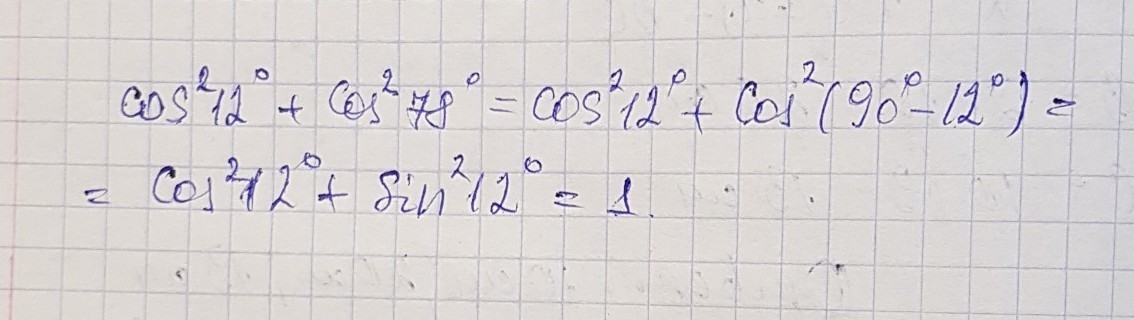 cos²12° + cos²78° = cos²12° + cos²(90° - 12°) =
= cos²12° + sin²12° = 1.